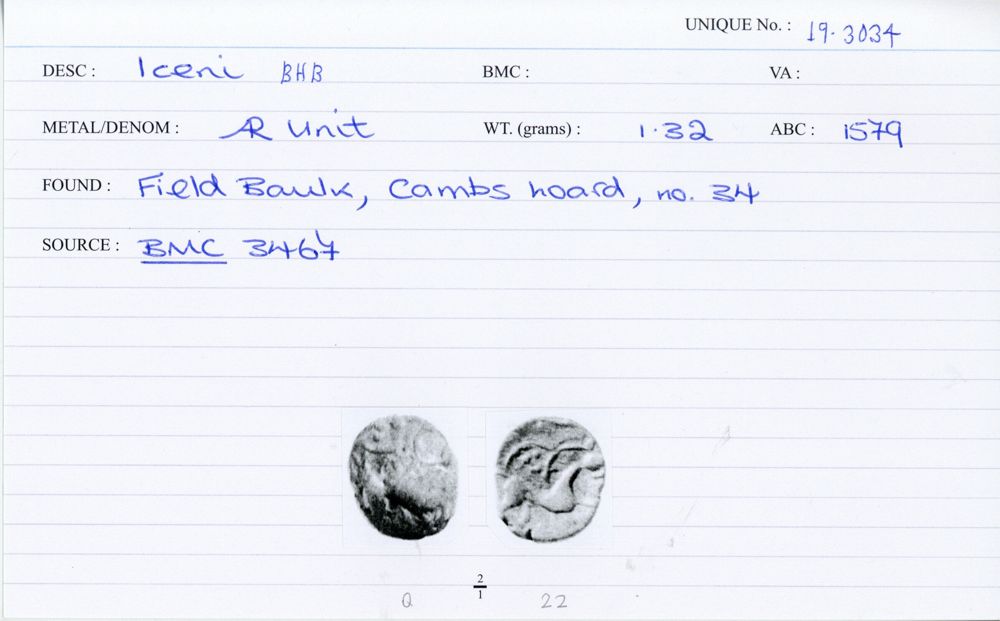 UNIQUE No. : 19.3034
DESC : Iceni BHB BMC : VA :
METAL/DENOM : AR Unit WT. (grams) : 1.32 ABC : 1579
FOUND : Field Baulk, Cambs hoard, no. 34
SOURCE : BMC 3467
2
1
Q 22